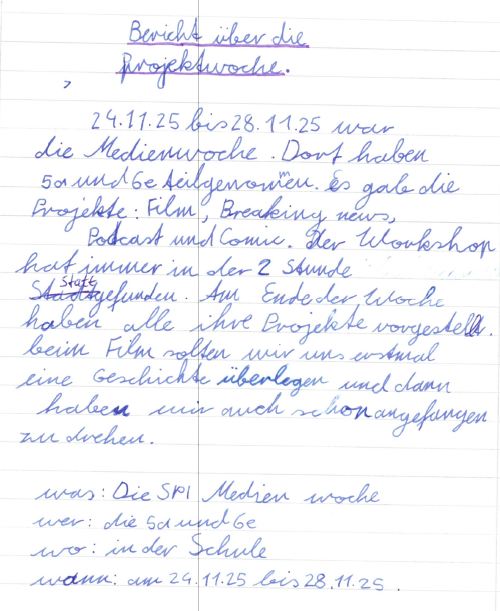 Bericht über die
Projektwoche.
24.11.25 bis 28.11.25 war
die Medienwoche. Dort haben
5a und 6e teilgenommen. es gab die
Projekte: Film, Breaking news,
Podcast und Comic. Der Workshop
hat immer in der 2 Stunde
Stattgefunden. Am Ende der Woche
haben alle ihre Projekte vorgestellt.
beim Film sollten wir uns erstmal
eine Geschichte überlegen und dann
haben wir auch schon angefangen
zu drehen.
was: Die SPI Medien woche
wer: die 5a und 6e
wo: in der Schule
wann: am 24.11.25 bis 28.11.25.